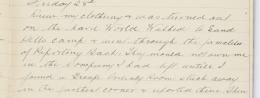 Friday 28th
Drew my clothing & was turned out
on the hard World Walked to Sand
Hills camp & went through the formalities
of Reporting Back. They would not own me
in the Company I had left until I
found a Draft Orderly Room stuck away
in the furthest corner & reported there. Then